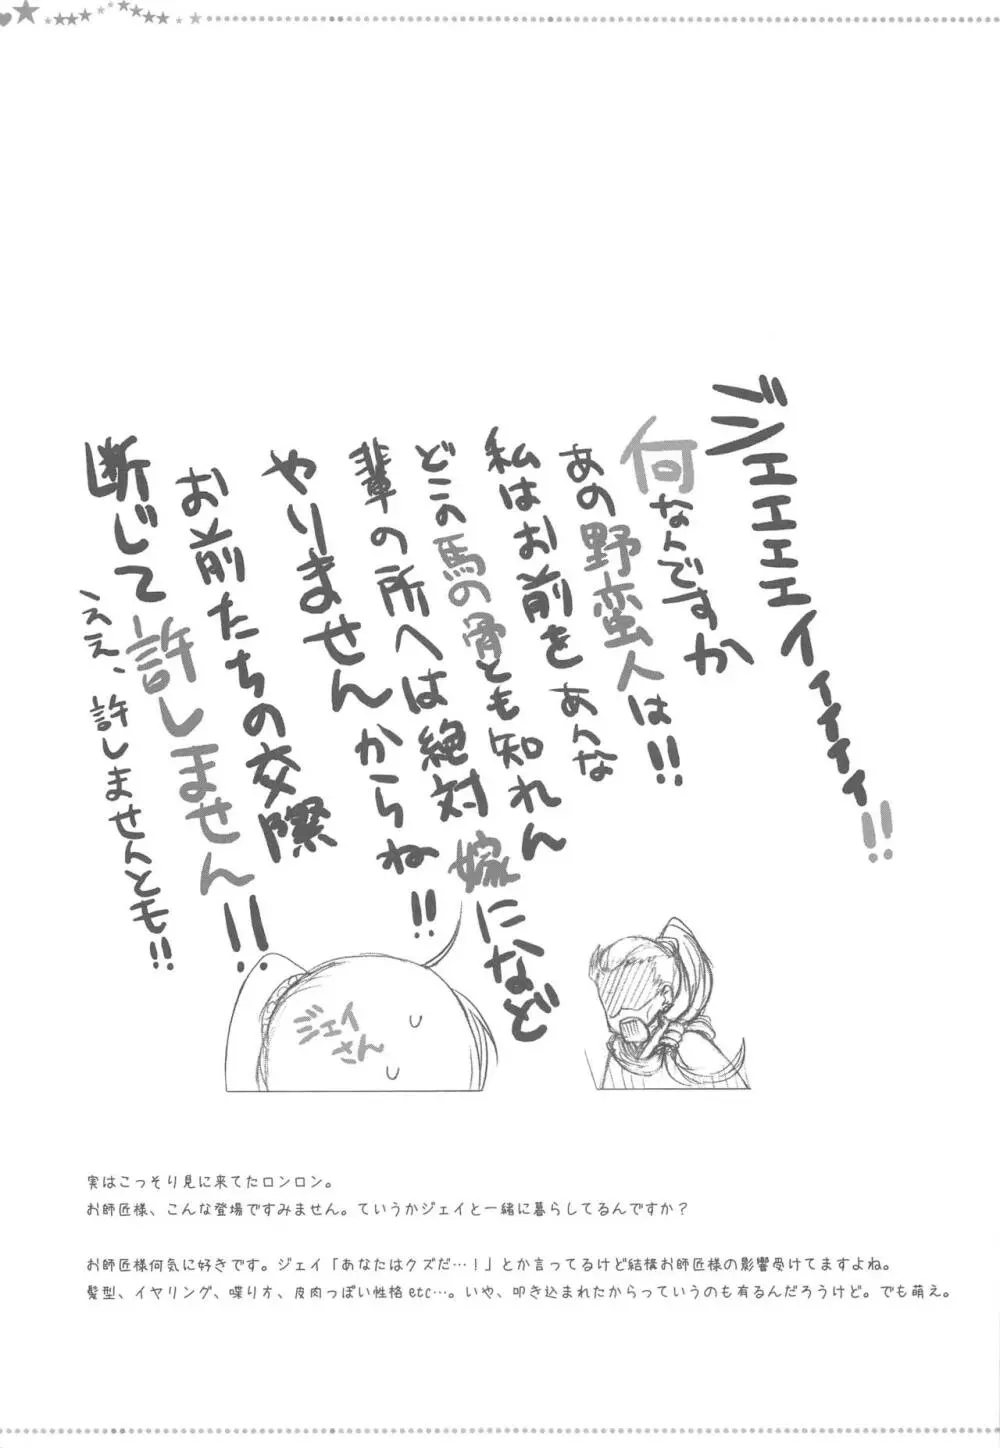 ジェェェェイィィィィィ!!
何なんですか
あの野蛮人は!!
私はお前をあんな
どこの馬の骨とも知れん
輩の所へは絶対嫁になど
やりませんからね!!
お前たちの交際
断じて許しません!!
ええ、許しませんとも!!
ジェイ
さん
実はこっそり見に来てたロンロン。
お師匠様、こんな登場ですみません。ていうかジェイと一緒に暮らしてるんですか?
お師匠様何気に好きです。ジェイ「あなたはクズだ…!」とか言ってるけど結構お師匠様の影響受けてますよね。
髪型、イヤリング、喋り方、皮肉っぽい性格etc…。いや、叩き込まれたからっていうのも有るんだろうけど。でも萌え。